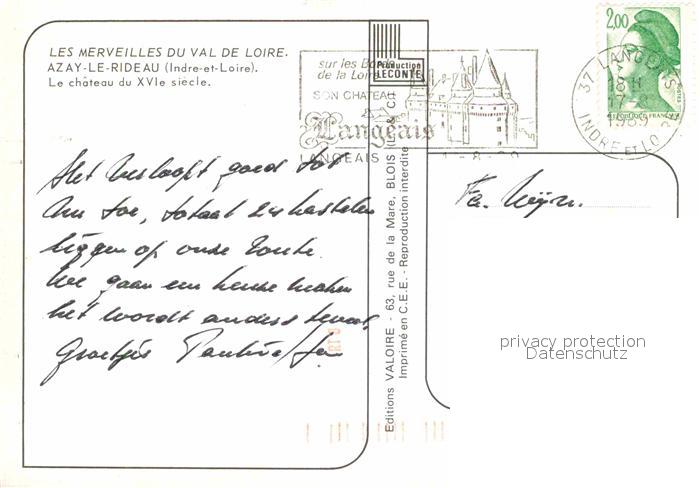 LES MERVEILLES DU VAL DE LOIRE.
AZAY-LE-RIDEAU (Indre-et-Loire).
Le château du XVIe siècle.
sur les Bords
de la Loire
SON CHATEAU
Langeais
LANGEAIS
Production
LECONTE
2,00
37 LANGEAIS
18 H
1989
INDRE ET LO
REPUBLIQUE FRANÇAISE
Het verloopt goed tot
nu toe, totaal 24 kastelen
liggen op onze route.
We gaan een keuze maken
het wordt anders teveel,
Groetjes Pauline
Fa.
Editions VALOIRE - 63, rue de la Mare, BLOIS
Imprimé en C.E.E. - Reproduction interdite
privacy protection
Datenschutz